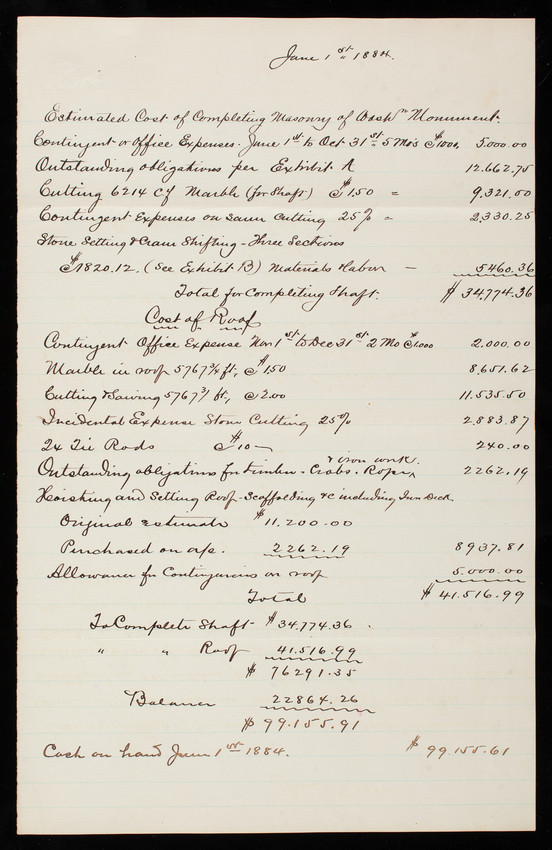 June 1st 1884.
Estimated Cost of Completing Masonry of Wash'n Monument.
Contingent or Office Expenses. June 1st to Oct 31st 5 Mo's $1000, 5.000.00
Outstanding obligations per Exhibit A 12.662.75
Cutting 6214 cf Marble (for Shaft) $1.50 = 9,321.00
Contingent Expenses on same cutting 25% = 2,330.25
Stone Setting & Crane Shifting - Three Sections
$1820.12. (See Exhibit B) Materials & Labor — 5460.36
Total for Completing Shaft. $34,774.36
Cost of Roof
Contingent Office Expense Nov 1st to Dec 31st 2 Mo $1000 2.000.00
Marble in roof 5767 3/4 ft, @ $1.50 8.651.62
Cutting & Sawing 5767 3/4 ft, @ 2.00 11.535.50
Incidental Expense Stone Cutting 25% 2.883.87
24 Tie Rods @ $10— 240.00
& iron work.
Outstanding obligations for timber - Crabs - Ropes 2262.19
Hoisting and Setting Roof - Scaffolding &c including
Original estimate $11.200.00
Purchased on a/c. 2262.19 8937.81
Allowance for Contingencies on roof 5.000.00
Total $41.516.99
To Complete Shaft $34.774.36.
" " Roof 41.516.99
$76291.35
Balance 22864.26
$99.155.91
Cash on hand June 1st 1884. $99.155.61